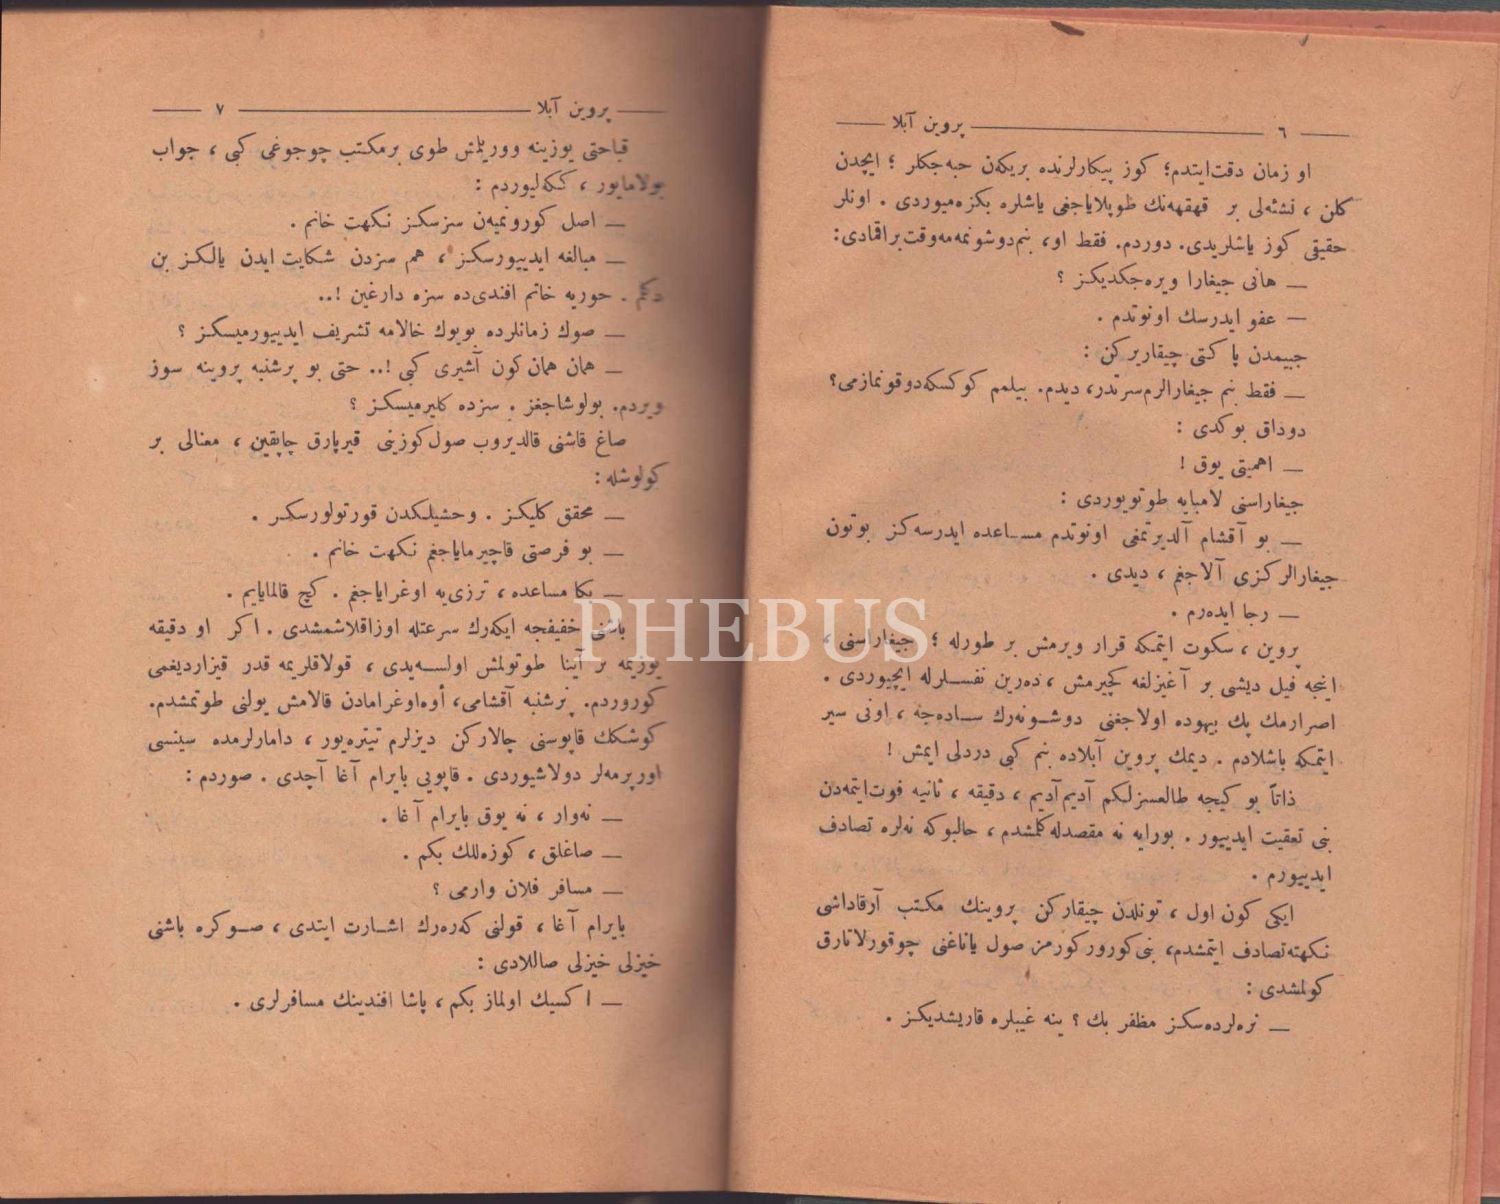 ٦ پروین آبلا
او زمان دقت‌ایتدم؛ كوز پیكارلرنده بریكەن حبەجكلر ؛ ایچدن
كلن ، نشئەلی بر قهقهەنك طوپلایاجغی یاشلره بكزەمیوردی . اونلر
حقیقی كوز یاشلریدی. دوردم. فقط او، بنم‌دوشونمەمەوقت‌براقمادی:
— هانی جیغارا ویرەجكدیكز ؟
— عفو ایدرسك اونوتدم .
جیبمدن پاكتی چیقاریركن :
— فقط بنم جیغارالرم‌سرتدر، دیدم. بیلمم كوكسكەدوقونمازمی؟
دوداق بوكدی :
— اهمیتی یوق !
جیغاراسنی لامبایه طوتویوردی :
— بو آقشام آلدیرتمغی اونوتدم مساعده ایدرسەكز بوتون
جیغارالركزی آلاجغم ، دیدی .
— رجا ایدەرم .
پروین ، سكوت ایتمكه قرار ویرمش بر طورله ؛ جیغاراسنی ،
اینجه فیل دیشی بر آغیزلغه كچیرمش ، دەرین نفسلرله ایچیوردی .
اصرارمك پك بیهوده اولاجغنی دوشونەرك سادەجه ، اونی سیر
ایتمكه باشلادم . دیمك پروین آبلاده بنم كبی دردلی ایمش !
ذاتاً بو كیجه طالعسزلكم آدیم‌آدیم ، دقیقه ، ثانیه فوت‌ایتمەدن
بنی تعقیت ایدییور . بورایه نه مقصدله‌كلمشدم ، حالبوكه نەلره تصادف
ایدییورم .
ایكی كون اول ، تونلدن چیقاركن پروینك مكتب آرقاداشی
نكهته‌تصادف ایتمشدم، بنی‌كورور‌كورمز صول یاناغنی چوقورلاتارق
كولمشدی :
— نرەلردەسكز مظفر بك ؟ ینه غیبلره قاریشدیكز .
پروین آبلا ٧
قباحتی یوزینه وورولمش طوی برمكتب چوجوغی كبی ، جواب
بولامایور ، ككەلیوردم :
— اصل كورونمیەن سزسكز نكهت خانم .
— مبالغه ایدییورسكز ، هم سزدن شكایت ایدن یالكز بن
دكلم . حوریه خانم افندی‌ده سزه دارغین !..
— صوك زمانلرده بویوك خالامه تشریف ایدییورمیسكز ؟
— همان همان كون آشیری كبی !.. حتی بو پرشنبه پروینه سوز
ویردم. بولوشاجغز . سزده كلیرمیسكز ؟
صاغ قاشنی قالدیروب صول‌كوزینی قیرپارق چاپقین ، معنالی بر
كولوشله :
— محقق كلیكز . وحشیلكدن قورتولورسكز .
— بو فرصتی قاچیرمایاجغم نكهت خانم .
— بكا مساعده ، ترزی‌یه اوغرایاجغم . كچ قالمایایم .
باشنی خفیفجه ایكەرك سرعتله اوزاقلاشمشدی . اكر او دقیقه
یوزیمه بر آینا طوتولمش اولسەیدی ، قولاقلریمه قدر قیزاردیغمی
كوروردم. پرشنبه آقشامی، أوەاوغرامادن قالامش یولنی طوتمشدم.
كوشكك قاپوسنی چالاركن دیزلرم تیترەیور ، دامارلرمده سینسی
اورپرمەلر دولاشیوردی . قاپویی بایرام آغا آچدی . صوردم :
— نەوار ، نه یوق بایرام آغا .
— صاغلق ، كوزەللك بكم .
— مسافر فلان وارمی ؟
بایرام آغا ، قولنی كەرەرك اشارت ایتدی ، صوكره باشنی
خیزلی خیزلی صاللادی :
— اكسیك اولماز بكم ، پاشا افندینك مسافرلری .
PHEBUS